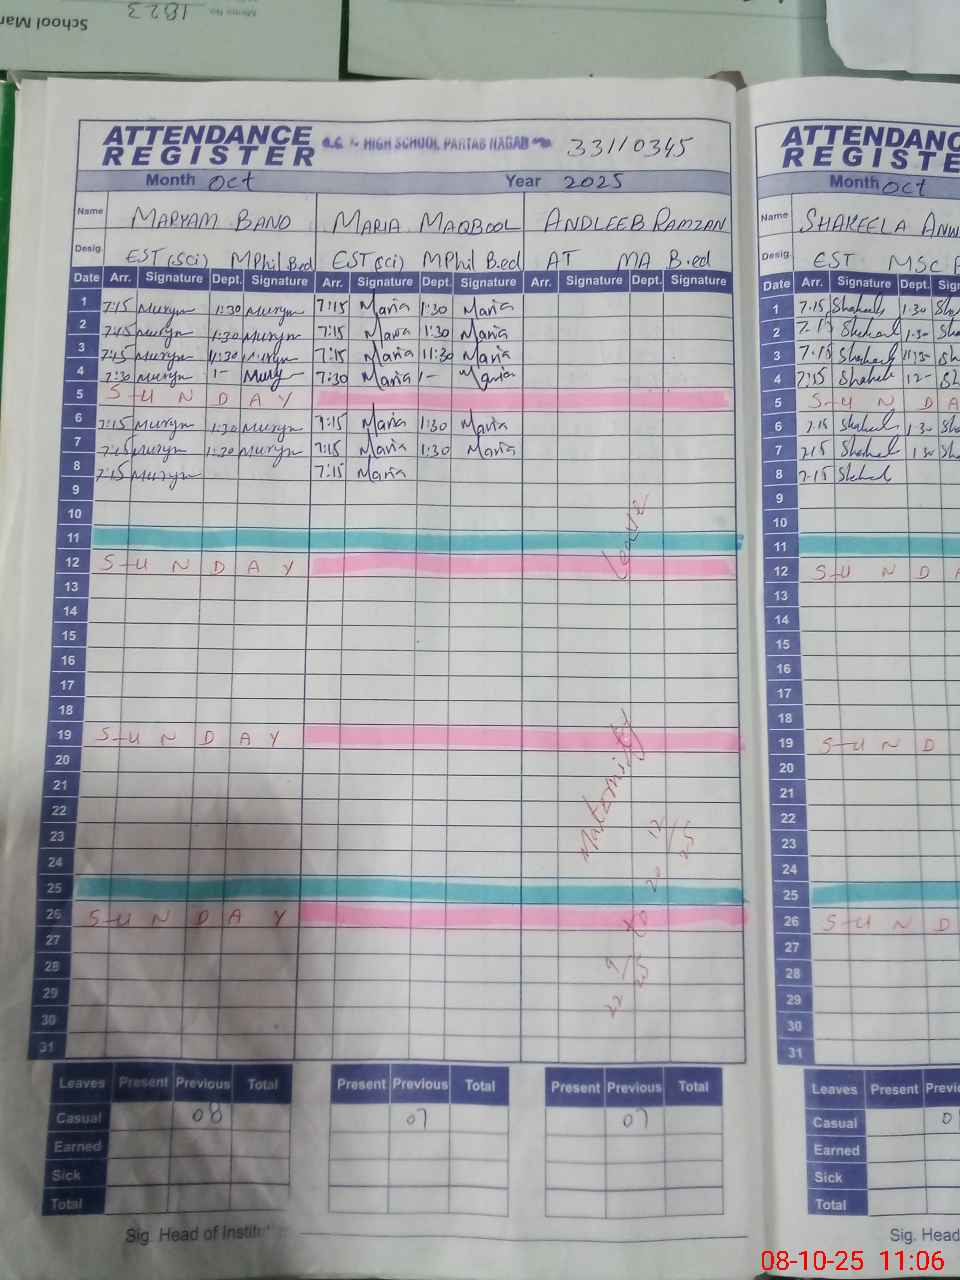 School Mar
1823
ATTENDANCE REGISTER HIGH SCHOOL PARTAB NAGAR 33110345
Month Oct Year 2025
Name MARYAM BANO MARIA MAQBOOL ANDLEEB RAMZAN
Desig. EST (Sci) MPhil B.ed EST (sci) MPhil B.ed AT MA B.ed
Date Arr. Signature Dept. Signature Arr. Signature Dept. Signature Arr. Signature Dept. Signature
1 7:15 Muryn 1:30 Muryn 7:15 Maria 1:30 Maria
2 7:15 Muryn 1:30 Muryn 7:15 Maria 1:30 Maria
3 7:15 Muryn 11:30 Muryn 7:15 Maria 11:30 Maria
4 7:30 Muryn 1- Mury 7:30 Maria 1- Maria
5 SUNDAY
6 7:15 Muryn 1:30 Muryn 7:15 Maria 1:30 Maria
7 7:15 Muryn 1:30 Muryn 7:15 Maria 1:30 Maria
8 7:15 Muryn 7:15 Maria
9
10
11
12 SUNDAY
13
14
15
16
17
18
19 SUNDAY
20
21
22
23
24
25
26 SUNDAY
27
28
29
30
31
22/9/25 to 20/12/25 Maternity Leave
Leaves Present Previous Total Present Previous Total Present Previous Total
Casual 08 07 07
Earned
Sick
Total
Sig. Head of Institu
ATTENDANC
REGISTE
Month Oct
Name SHAKEELA ANW
Desig. EST MSC
Date Arr. Signature Dept. Sig
1 7.15 Shakeel 1.30 Sh
2 7.15 Shakeel 1.30 Sh
3 7.15 Shakeel 11:30 Sh
4 7:15 Shakeel 12- Sh
5 SUNDA
6 7.15 Shakeel 1.30 Sha
7 7.15 Shakeel 1.30 Sha
8 7.15 Shakeel
9
10
11
12 SUNDA
13
14
15
16
17
18
19 SUND
20
21
22
23
24
25
26 SUND
27
28
29
30
31
Leaves Present Previo
Casual 0
Earned
Sick
Total
Sig. Head
08-10-25 11:06